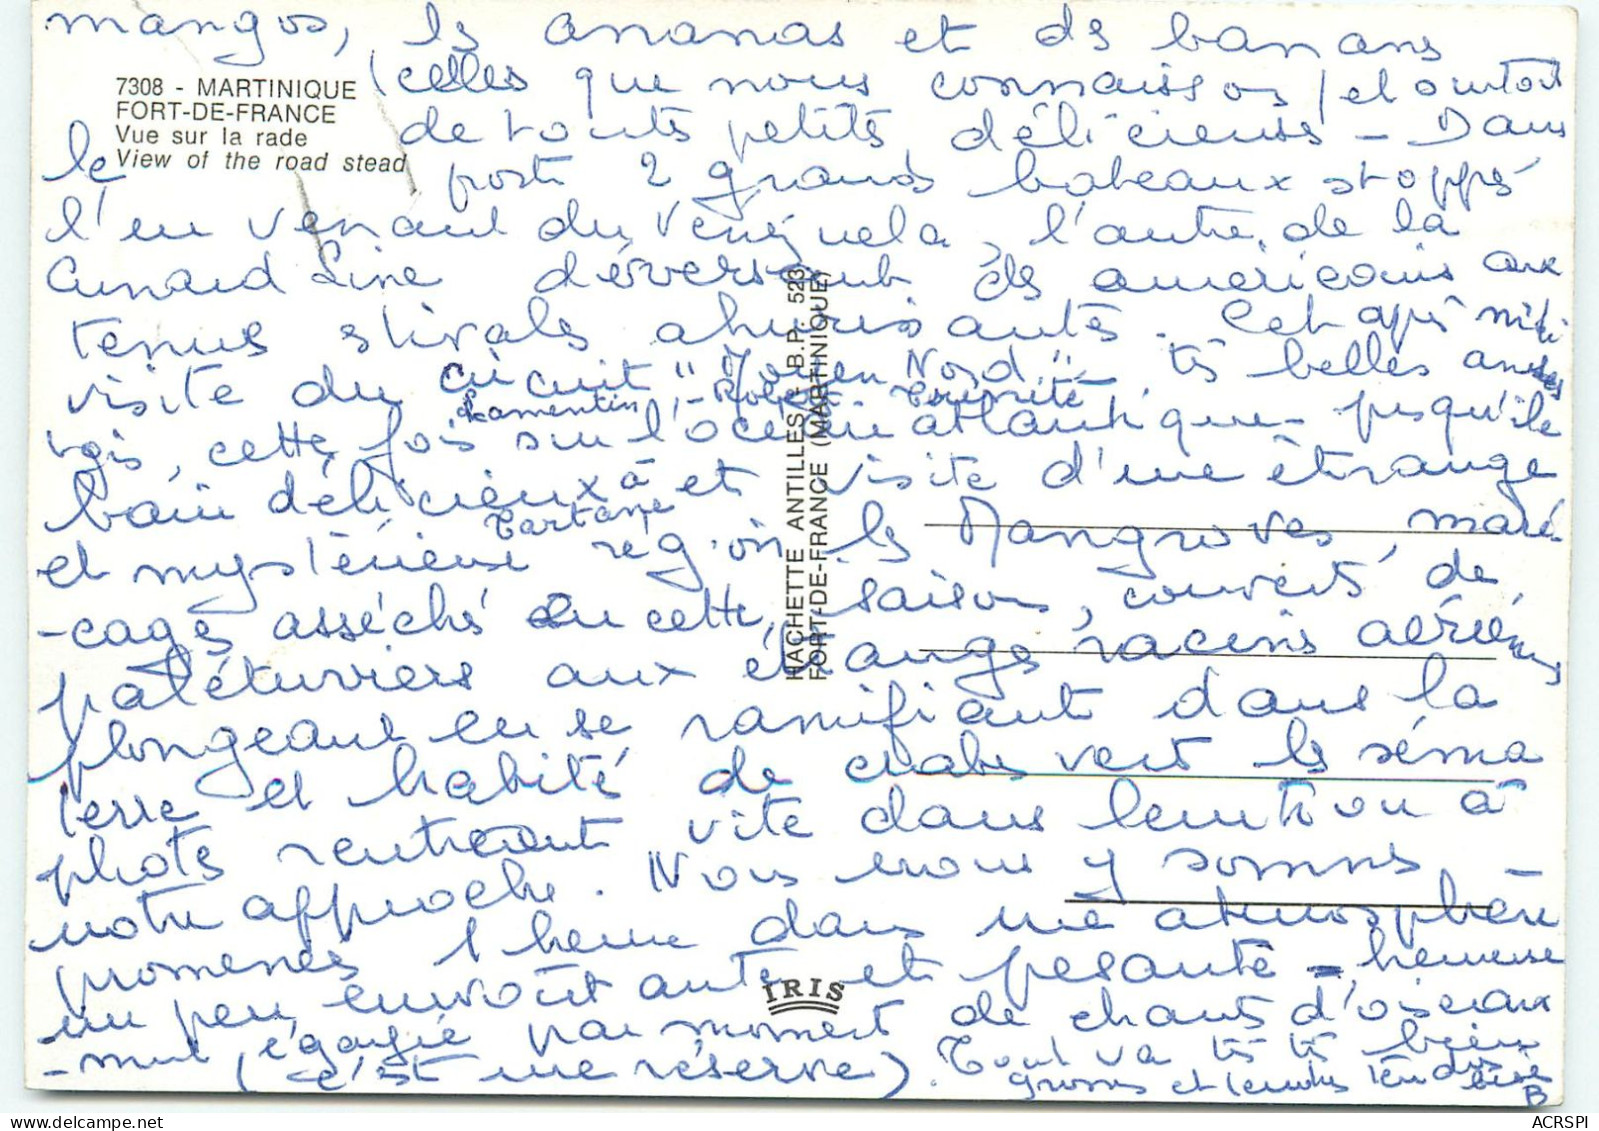 mangos, ls ananas et ds banans
7308 - MARTINIQUE
FORT-DE-FRANCE
Vue sur la rade
View of the road stead
(celles que nous connaissons) et surtout
de touts petits, délicieuses - Dans
le port 2 grands bateaux stoppés
l'en venant du Vénézuela, l'autre de la
Cunard Line déversant ds americains aux
tenus stivals ahurissants. Cet après midi
visite du circuit "Moyen Nord" - ts belles anses
Lamentin - Robert - Trinité
fois, cette fois sur l'océan atlantique - presqu'ile
bain délicieux à et visite d'une étrange
Tartane
et mystérieuse région ls Mangroves, maré-
-cages asséchés en cette saison, couverts de
palétuviers aux étranges racins aériennes
plongeant en se ramifiant dans la
terre et habité de crabs vert ls séma
phots rentrant vite dans leur trou à
notre approche. Nous nous y somms
promenés 1 heure dans une atmosphère
un peu envoûtante et pesante - heureuse
-ment (égayée par moment de chants d'oiseaux
(c'est une réserve). Tout va ts ts bien
grosses et tendres tendresses
B
HACHETTE ANTILLES - B.P. 523
FORT-DE-FRANCE (MARTINIQUE)
IRIS
ACRSPI